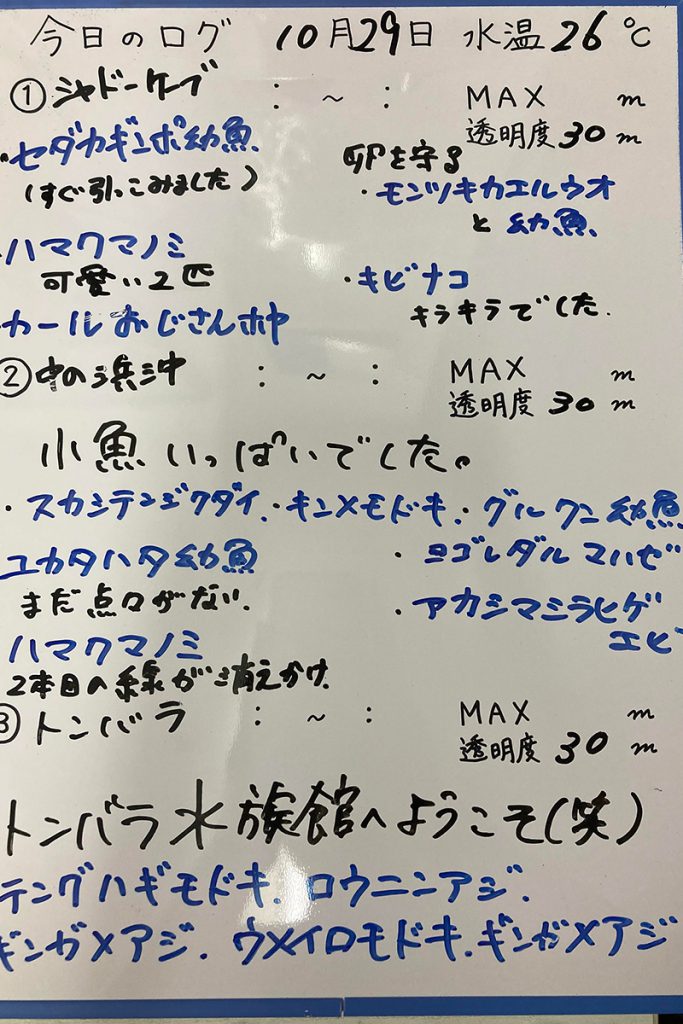 今日のログ 10月29日 水温26℃
①シャドーケーブ : ~ : MAX m
透明度30m
・セダカギンポ幼魚
(すぐ引っこみました)
卵を守る
・モンツキカエルウオ
と幼魚
ハマクマノミ
可愛い2匹
・キビナコ
キラキラでした.
カールおじさん
②中の浜沖 : ~ : MAX m
透明度30m
小魚いっぱいでした。
・スカシテンジクダイ.・キンメモドキ.・グルクン幼魚
ユカタハタ幼魚
まだ点々がない.
・ヨゴレダルマハゼ
・アカシマシラヒゲ
エビ
ハマクマノミ
2本目の線が消えかけ.
③トンバラ : ~ : MAX m
透明度30m
トンバラ水族館へようこそ(笑)
テングハギモドキ.ロウニンアジ.
ギンガメアジ.ウメイロモドキ.ギンガメアジ